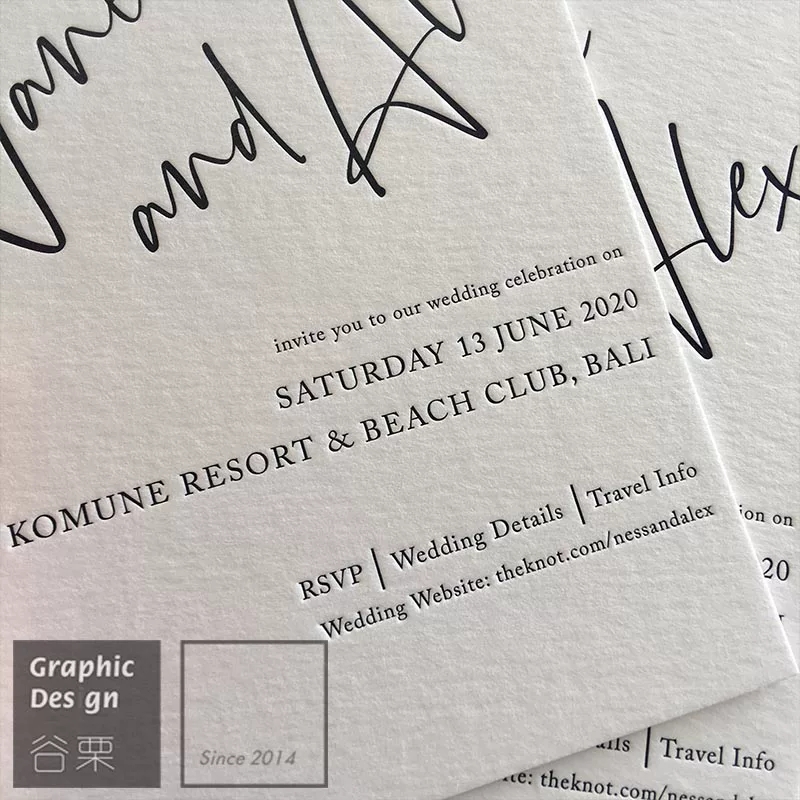 and
invite you to our wedding celebration on
SATURDAY 13 JUNE 2020
KOMUNE RESORT & BEACH CLUB, BALI
RSVP | Wedding Details | Travel Info
Wedding Website: theknot.com/nessandalex
lex
ion on
20
Travel Info
theknot.com/nessandalex
Graphic
Des gn
谷栗
Since 2014